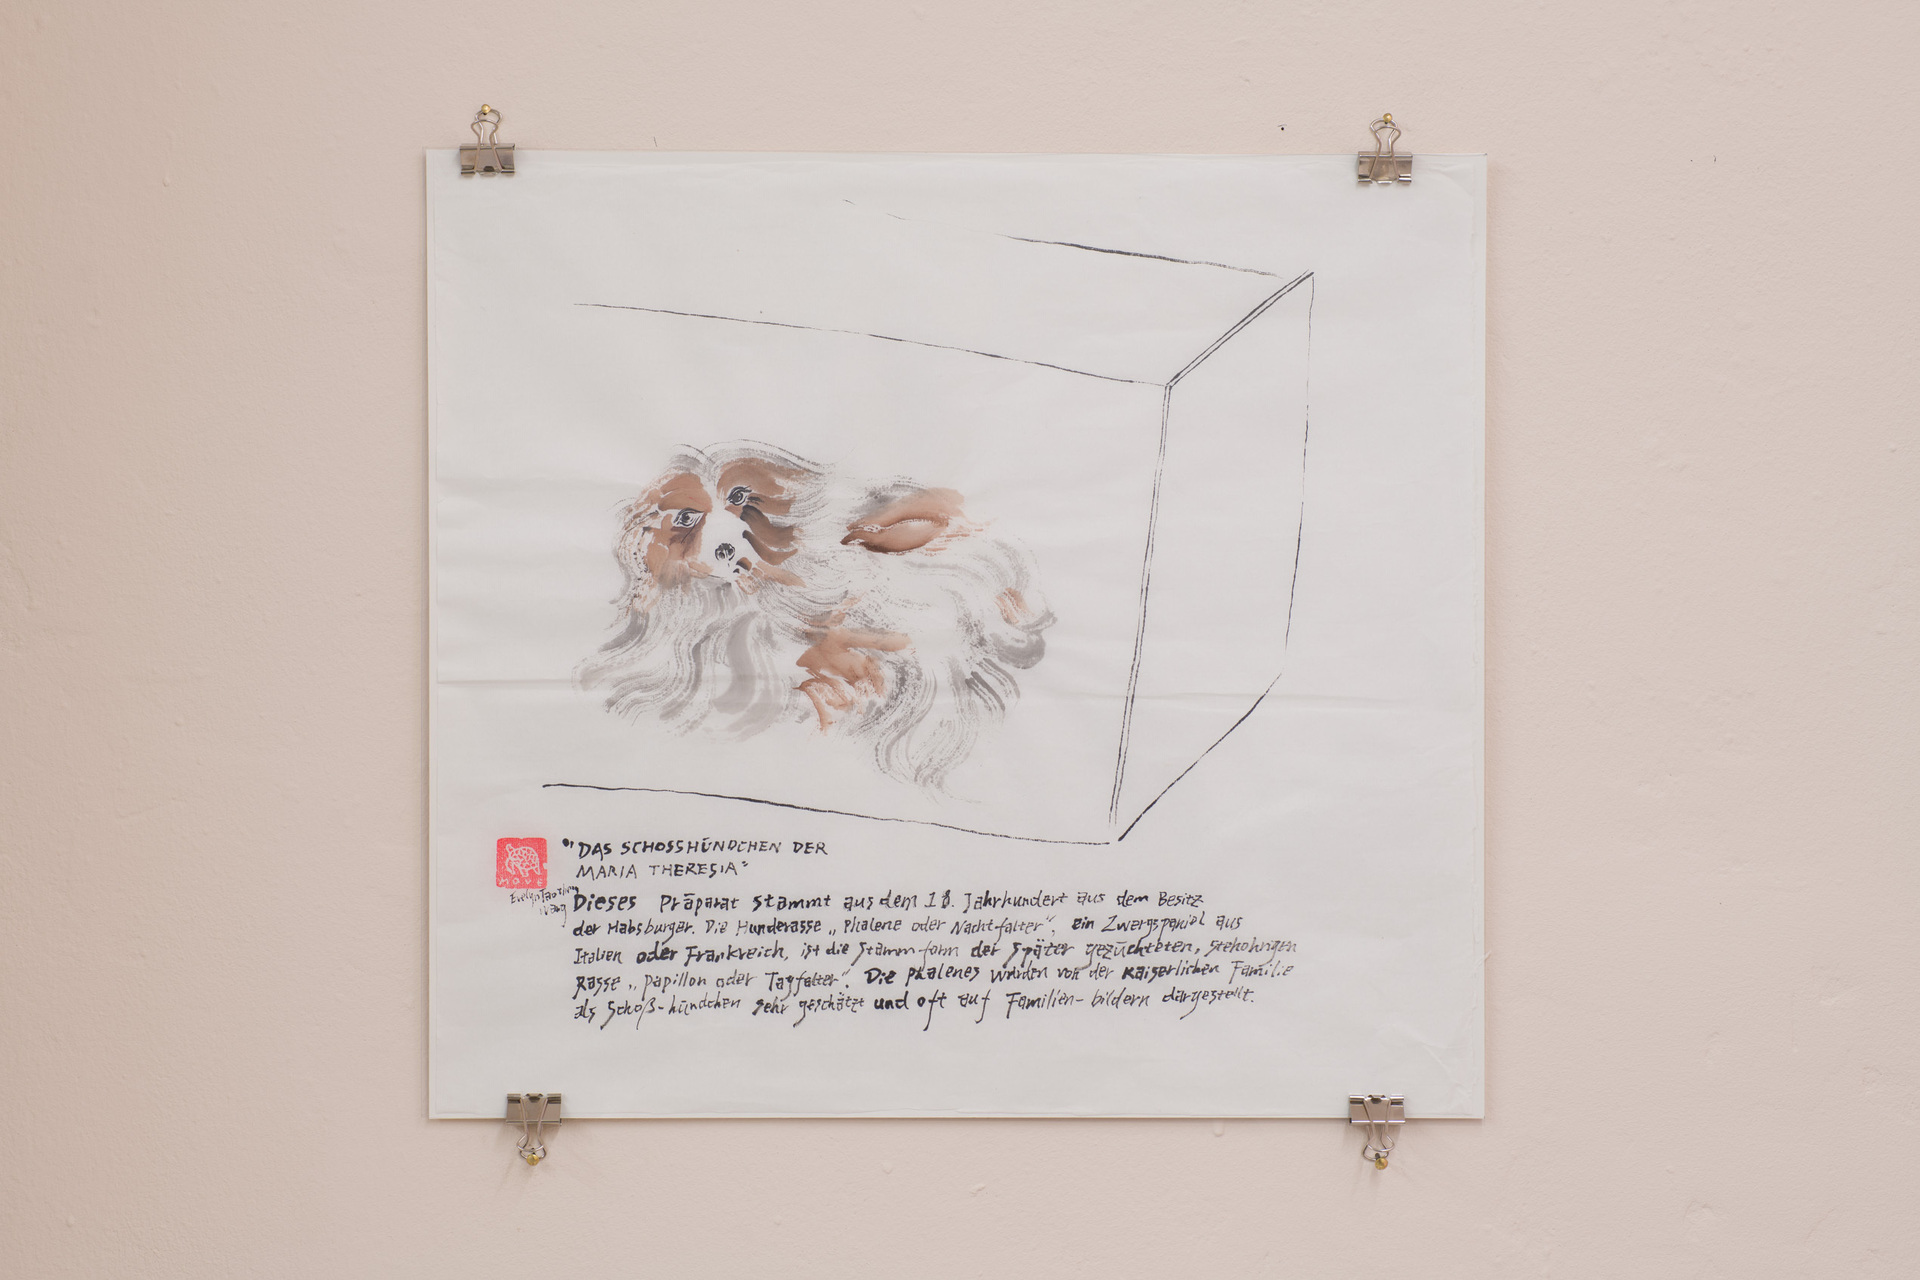 "DAS SCHOSSHÜNDCHEN DER
MARIA THERESIA"
Dieses Präparat stammt aus dem 18. Jahrhundert aus dem Besitz
der Habsburger. Die Hunderasse „Phalene oder Nacht-falter", ein Zwergspaniel aus
Italien oder Frankreich, ist die Stamm-form der später gezüchteten, stehohrigen
Rasse „Papillon oder Tagfalter". Die Phalenes wurden von der Kaiserlichen Familie
als Schoß-hündchen sehr geschätzt und oft auf Familien-bildern dargestellt.
Evelyn Taocheng
Wang